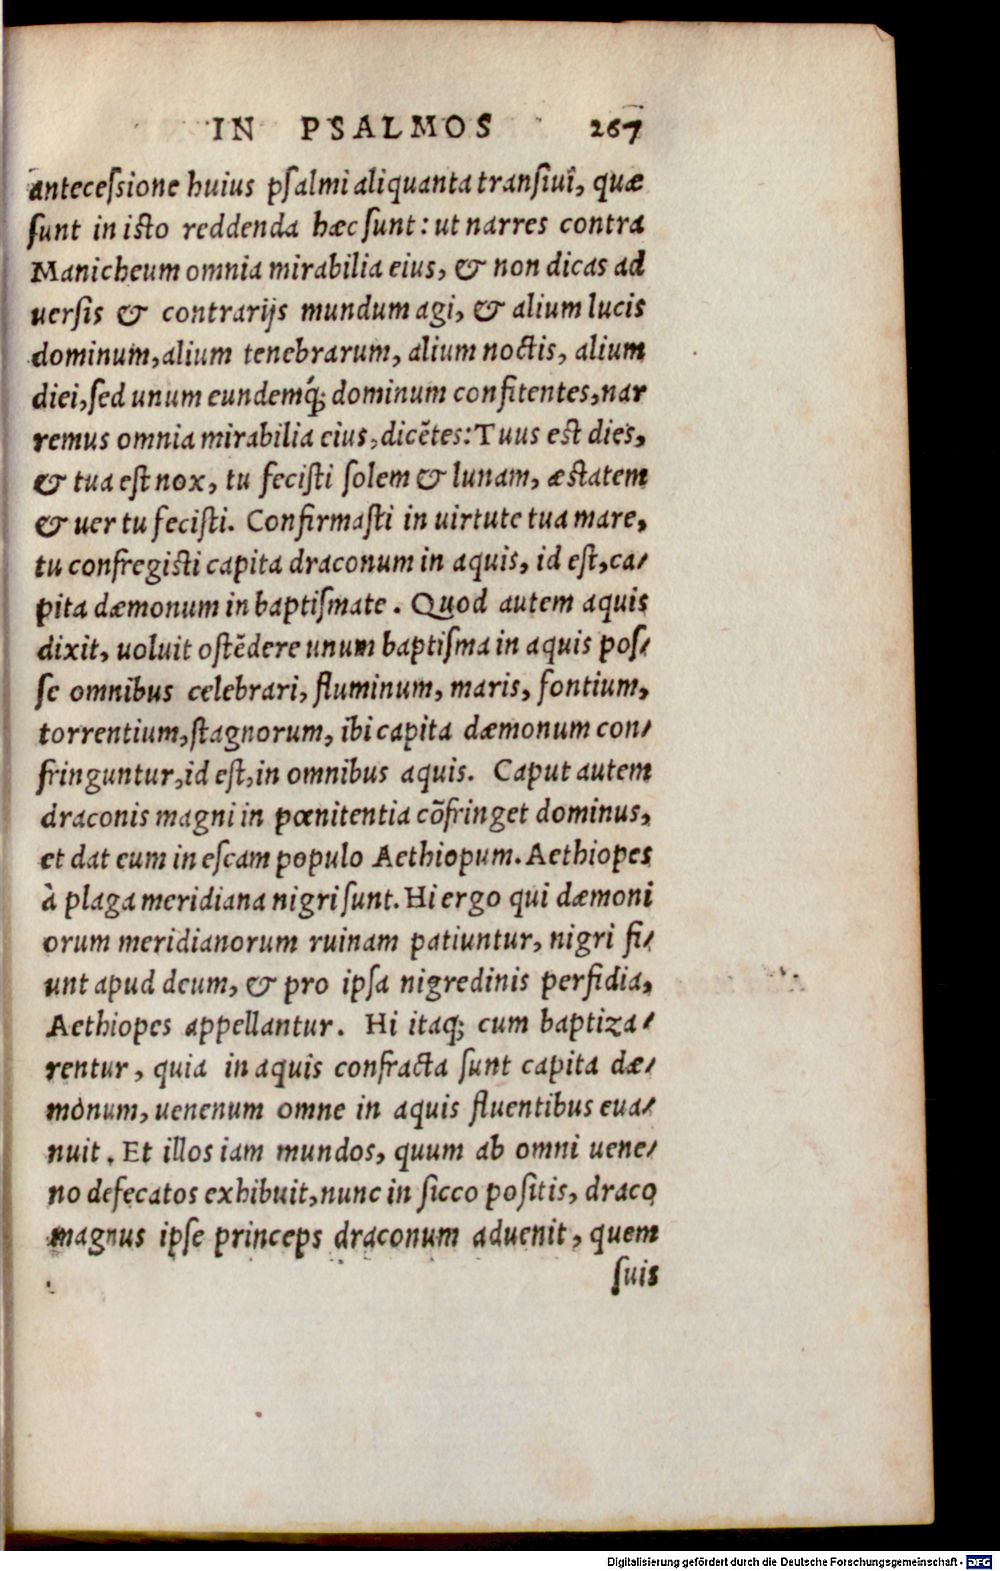 IN PSALMOS 267
antecessione huius psalmi aliquanta transiui, quæ
sunt in isto reddenda hæc sunt: ut narres contra
Manicheum omnia mirabilia eius, & non dicas ad
uersis & contrarijs mundum agi, & alium lucis
dominum, alium tenebrarum, alium noctis, alium
diei, sed unum eundemq́; dominum confitentes, nar
remus omnia mirabilia eius, dicẽtes: Tuus est dies,
& tua est nox, tu fecisti solem & lunam, æstatem
& uer tu fecisti. Confirmasti in uirtute tua mare,
tu confregisti capita draconum in aquis, id est, ca-
pita dæmonum in baptismate. Quod autem aquis
dixit, uoluit ostẽdere unum baptisma in aquis pos-
se omnibus celebrari, fluminum, maris, fontium,
torrentium, stagnorum, ibi capita dæmonum con-
fringuntur, id est, in omnibus aquis. Caput autem
draconis magni in pœnitentia cõfringet dominus,
et dat eum in escam populo Aethiopum. Aethiopes
à plaga meridiana nigri sunt. Hi ergo qui dæmoni
orum meridianorum ruinam patiuntur, nigri fi-
unt apud deum, & pro ipsa nigredinis perfidia,
Aethiopes appellantur. Hi itaq; cum baptiza-
rentur, quia in aquis confracta sunt capita dæ-
monum, uenenum omne in aquis fluentibus eua-
nuit. Et illos iam mundos, quum ab omni uene-
no defecatos exhibuit, nunc in sicco positis, draco
magnus ipse princeps draconum aduenit, quem
suis
Digitalisierung gefördert durch die Deutsche Forschungsgemeinschaft - DFG